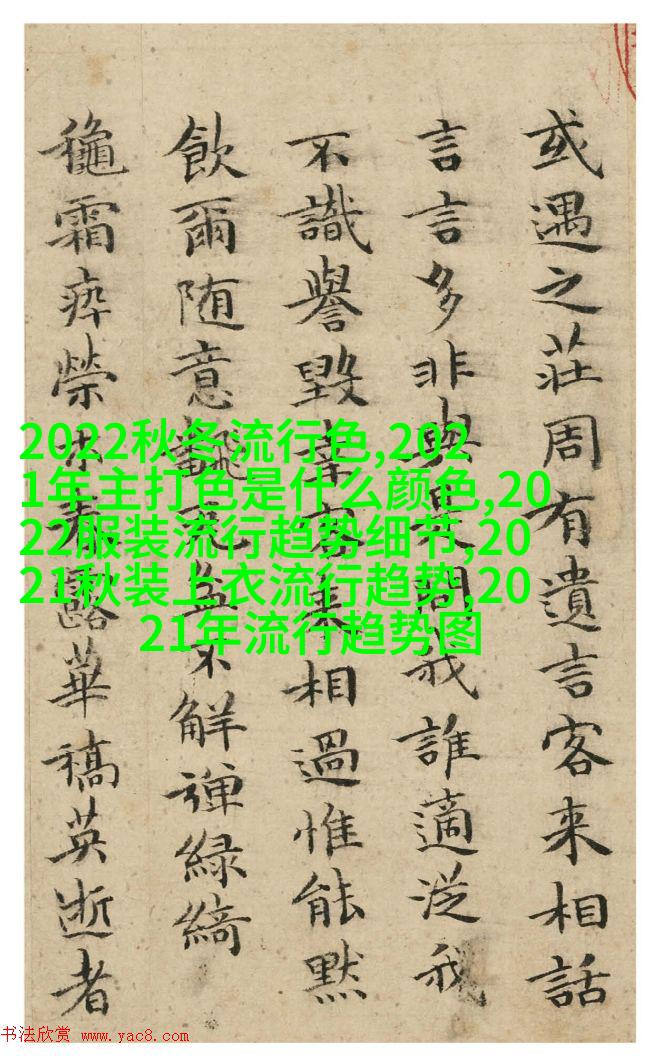 或遇之莊周有遺言客来相話
言言多非與是問我誰適従我
不識譽毀相過惟能默
飲爾随意不解彈緑綺
龝霜瘁榮木春露華槁英逝者
2022秋冬流行色,202
1年主打色是什么颜色,20
22服装流行趋势细节,20
21秋装上衣流行趋势,20
21年流行趋势图
书法欣赏 www.yac8.com